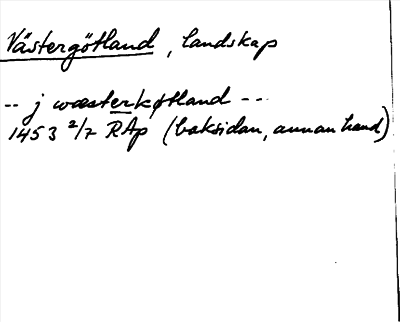 Västergötland, landskap
-- j wæsterkøtland ---
1453 2/7 RAp (baksidan, annan hand)